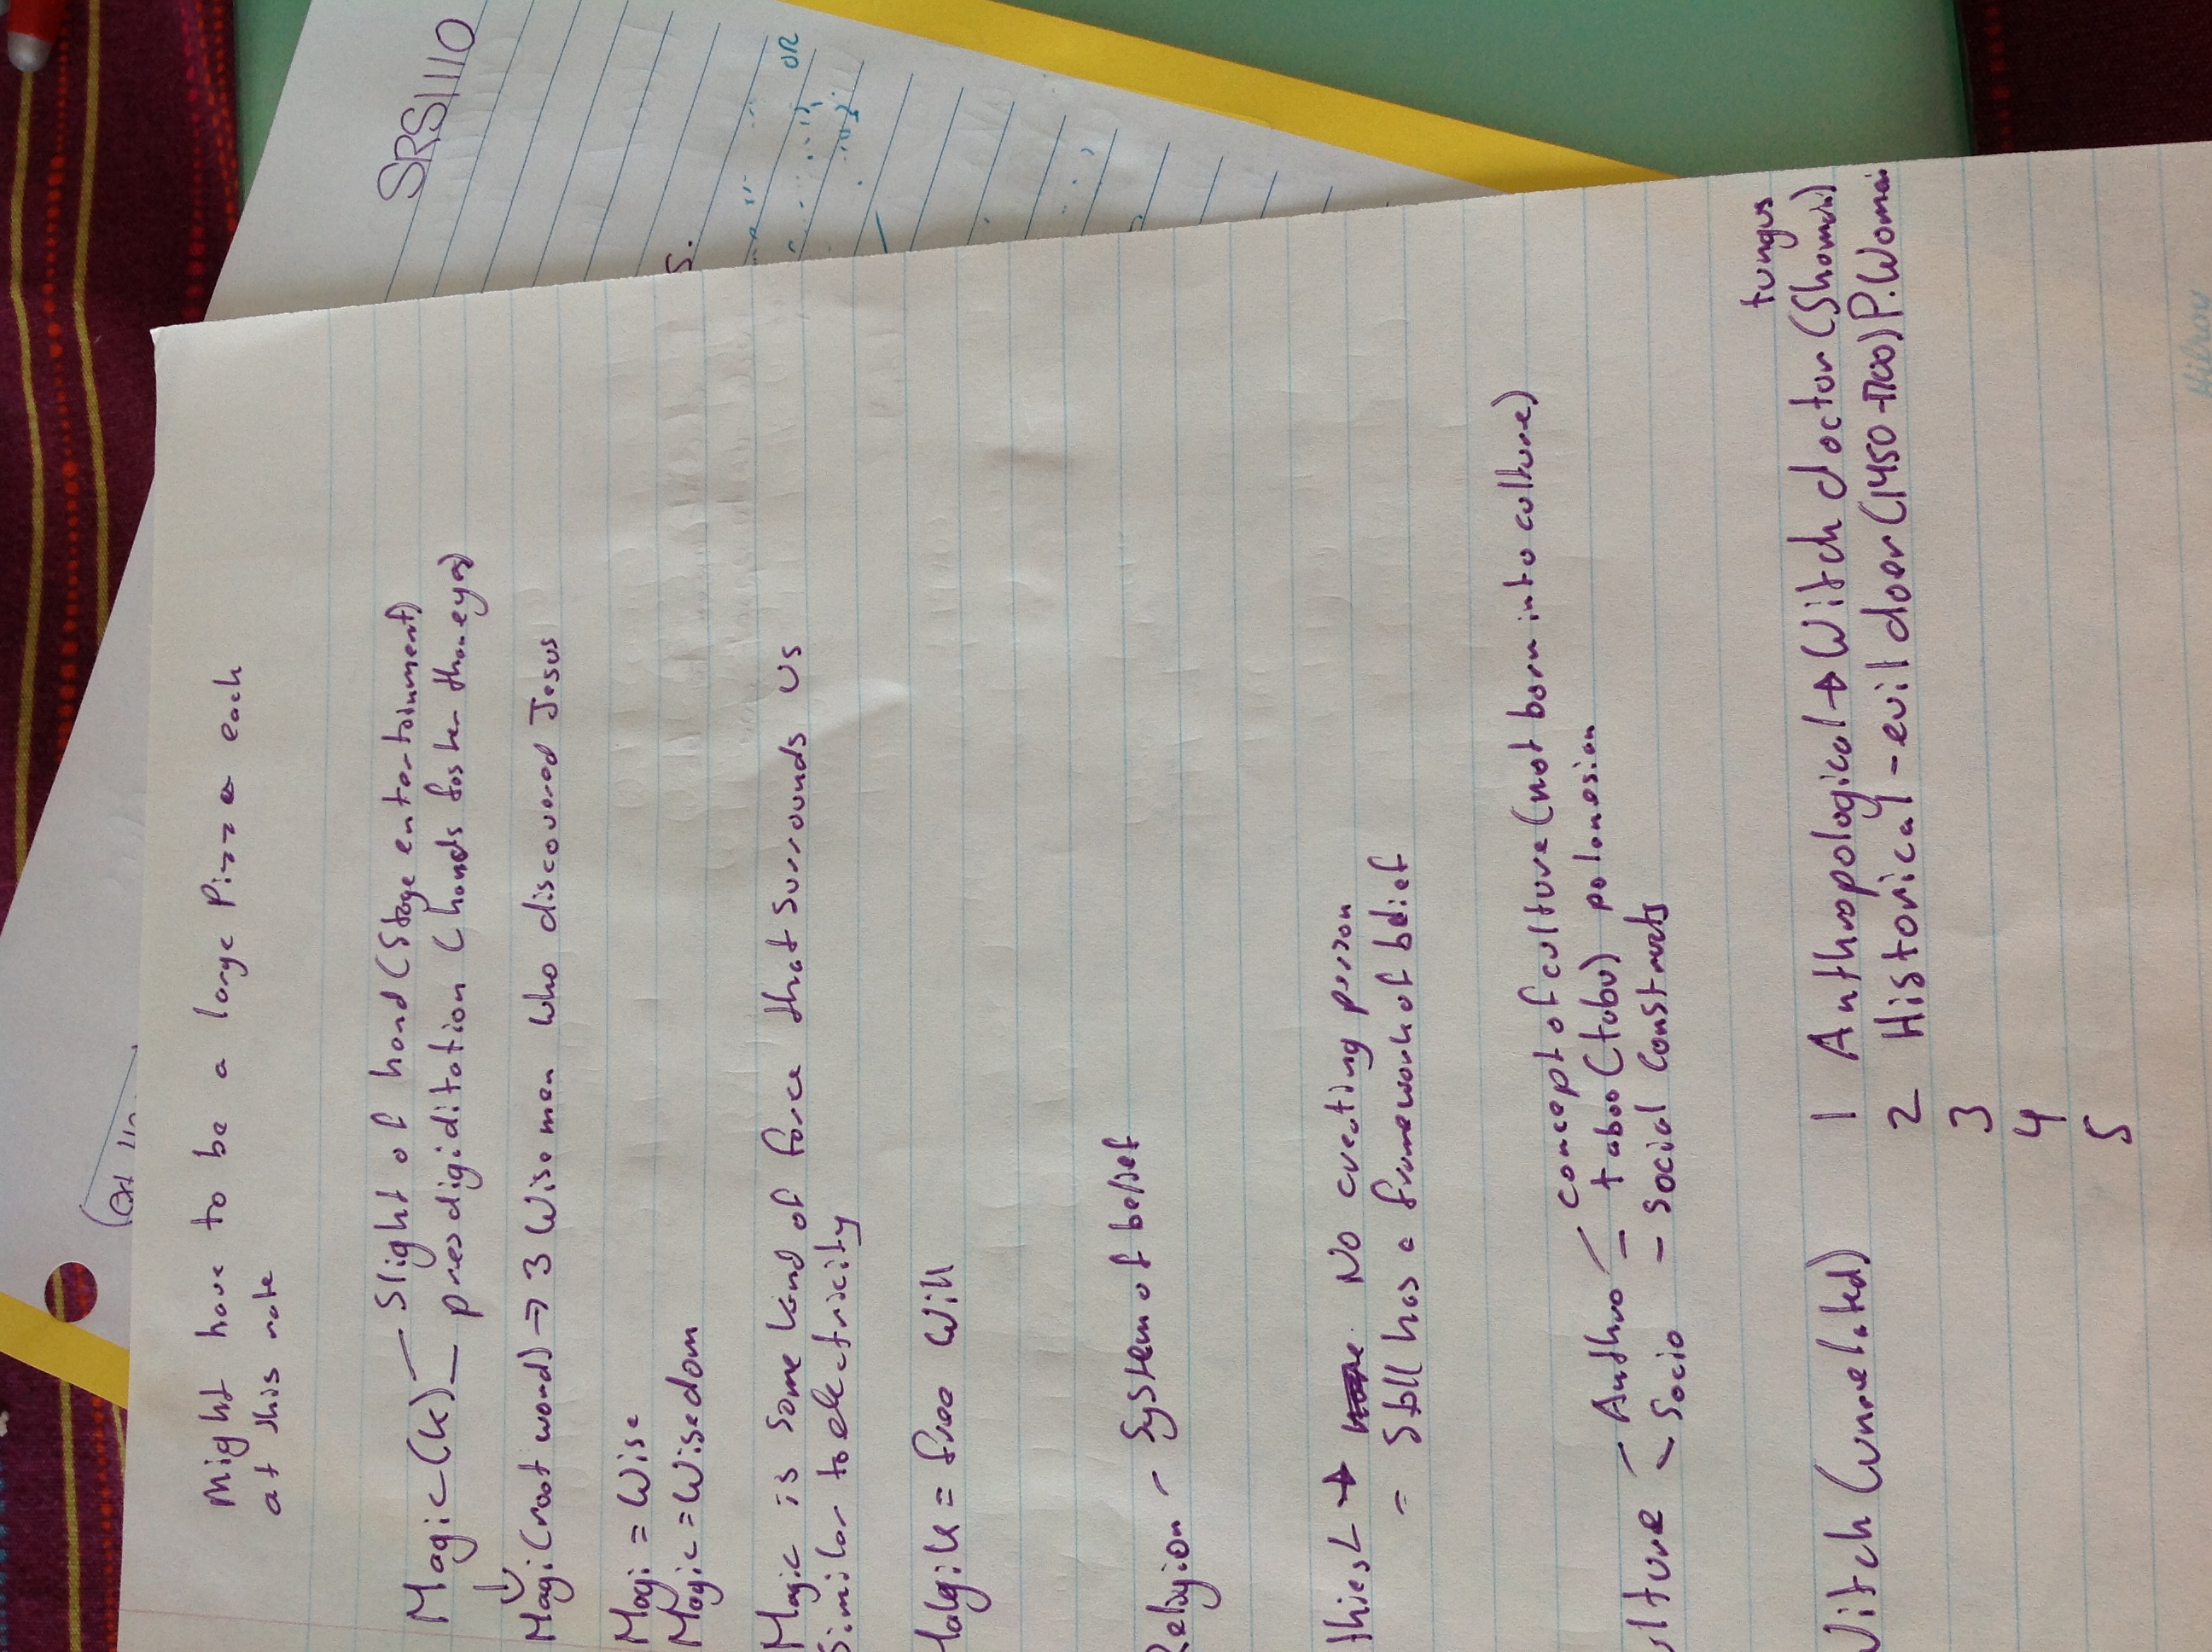 SRS1110
OR
S.
Might have to be a large Pizza each
at this rate
Magic(k) - Slight of hand (Stage entertainment)
- presdigiditation (hands faster than eyes)
Magi (root word) → 3 Wise men who discovered Jesus
Magi = Wise
Magic = Wisedom
Magic is some kind of force that surrounds us
Similar to electricity
= free Will
Religion - System of belief
No creating person
- Still has a framework of belief
lture - Anthro - concept of culture (not born into culture)
- taboo (tabu) polonesian
- Socio - social constructs
Witch (unrelated)
tungus
1 Anthropological → Witch doctor (Shaman)
2 Historical - evil doer (1450-1700) P.Woman
3
4
5